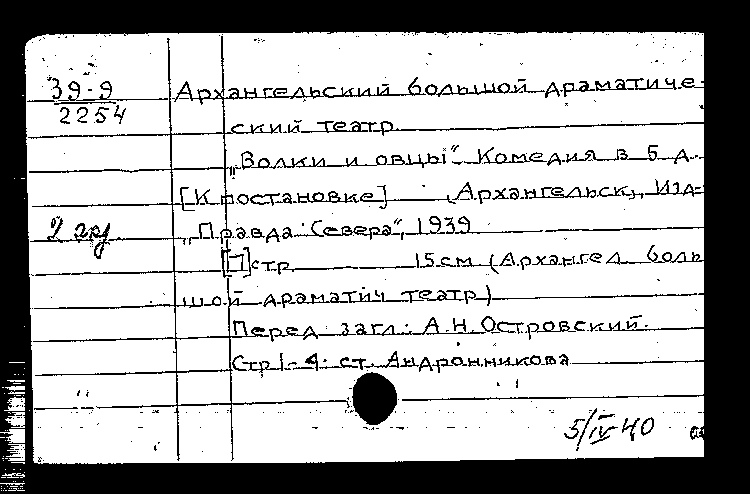 39-9
2254
Архангельский большой драматиче-
ский театр.
„Волки и овцы". Комедия в 5 д.
[К постановке] (Архангельск), Изд-
2 арх.
„Правда Севера", 1939
[П]стр. 15см (Архангел. боль
шой драматич театр)
Перед загл.: А.Н. Островский.
Стр 1-4: ст. Андронникова
5/IV-40